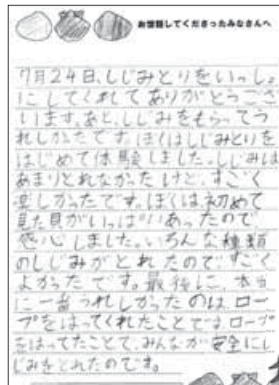 お世話してくださったみなさんへ
7月24日、しじみとりをいっしょ
にしてくれてありがとうござ
います。あと、しじみをもらってう
れしかったです。ぼくはしじみとりを
はじめて体験しました。しじみは
あまりとれなかったけど、すごく
楽しかったです。ぼくは初めて
見た貝がいっぱいあったので
感心しました。いろんな種類
のしじみがとれたのですごく
よかったです。最後に、本当
に一番うれしかったのは、ロー
プをはってくれたことです。ロープ
をはってたことで、みんなが安全にし
じみをとれたのです。